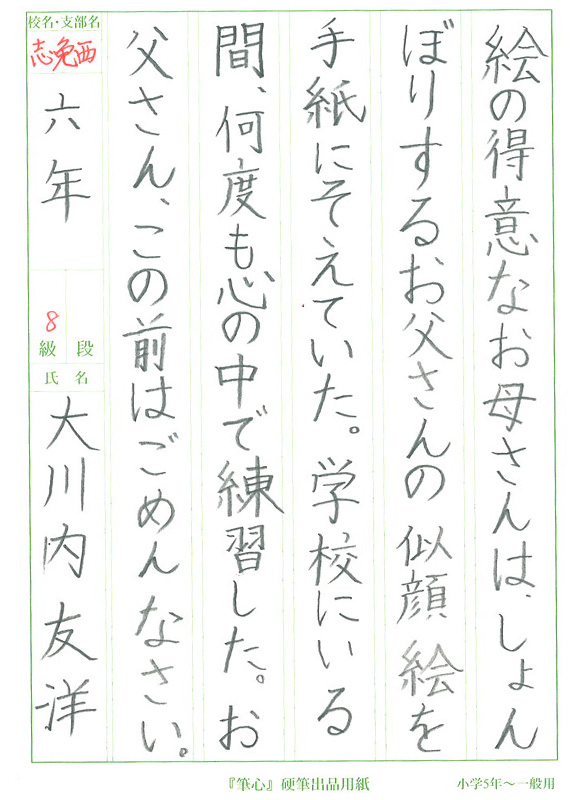 絵の得意なお母さんは、しょん
ぼりするお父さんの似顔絵を
手紙にそえていた。学校にいる
間、何度も心の中で練習した。お
父さん、この前はごめんなさい。
校名・支部名
志免西
六年
8
級 段
氏名
大川内友洋
『筆心』硬筆出品用紙
小学5年～一般用